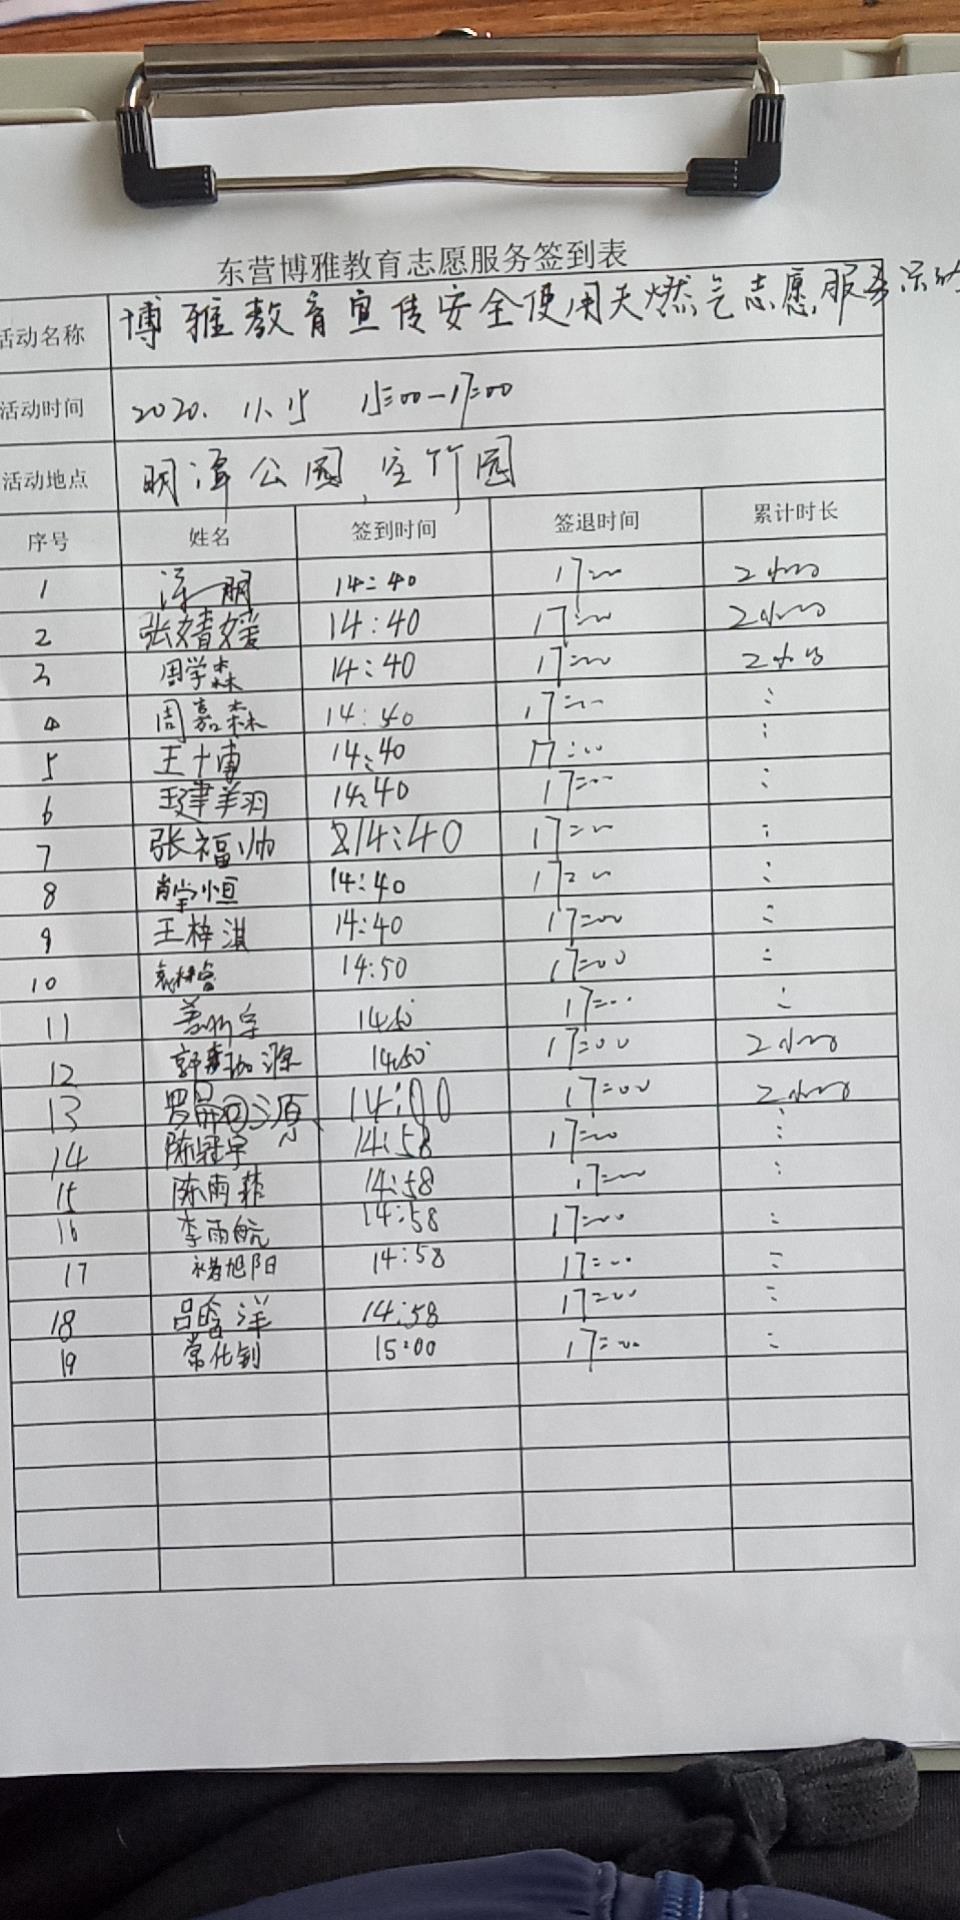 东营博雅教育志愿服务签到表
活动名称 博雅教育宣传安全使用天燃气志愿服务活动
活动时间 2020.11.15 15:00-17:00
活动地点 明潭公园,空竹园
序号 姓名 签到时间 签退时间 累计时长
1 14:40 17:00 2小时
2 张婧媛 14:40 17:00 2小时
3 周学森 14:40 17:00 2小时
4 周嘉森 14:40 17:00 :
5 王十博 14:40 17:00 :
6 14:40 17:00 :
7 张福帅 14:40 17:00 :
8 肖莹恒 14:40 17:00 :
9 王梓淇 14:40 17:00 :
10 14:50 17:00 :
11 14:50 17:00 :
12 14:50 17:00 2小时
13 14:00 17:00 2小时
14 陈冠宇 14:58 17:00 :
15 陈雨菲 14:58 17:00 :
16 李雨航 14:58 17:00 :
17 褚旭阳 14:58 17:00 :
18 吕晗洋 14:58 17:00 :
19 常化钊 15:00 17:00 :